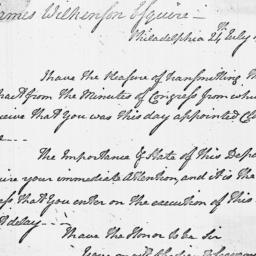 James Wilkinson Esquire —
Philadelphia 24th July
I have the Pleasure of transmitting
from the Minutes of Congress from
that You was this day appointed
The Importance & State of this
your immediate Attention, and it is the
that You enter on the execution of this
delay
I have the Honor to be Sir